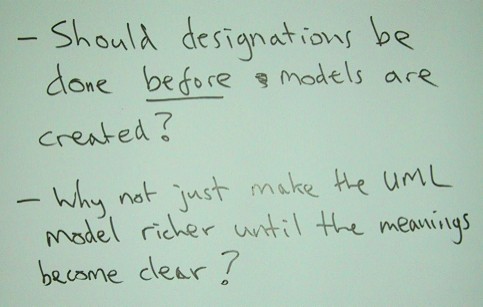 - Should designations be
done before models are
created?
- Why not just make the UML
model richer until the meanings
become clear?